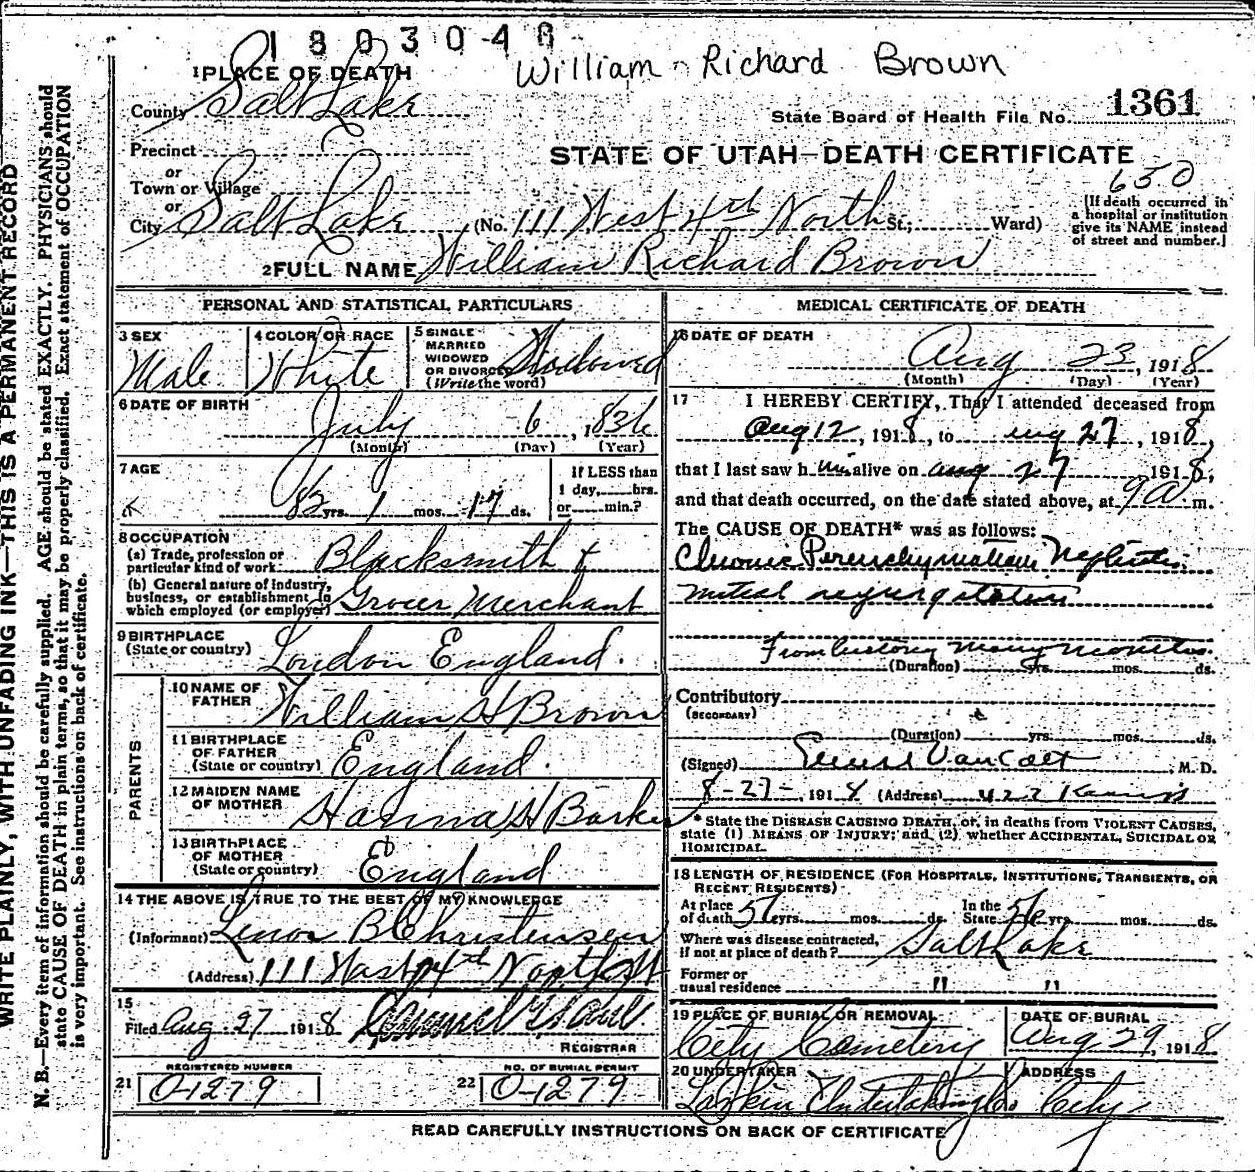 1803040
William Richard Brown
1 PLACE OF DEATH
County Salt Lake
State Board of Health File No. 1361
Precinct
STATE OF UTAH—DEATH CERTIFICATE
650
or
Town or Village
or
City Salt Lake (No. 111 West 4th North St.; Ward)
[If death occurred in
a hospital or institution
give its NAME instead
of street and number.]
2 FULL NAME William Richard Brown
PERSONAL AND STATISTICAL PARTICULARS
3 SEX Male
4 COLOR OR RACE White
5 SINGLE
MARRIED
WIDOWED
OR DIVORCED
(Write the word) Widowed
6 DATE OF BIRTH
July 6, 1836
(Month) (Day) (Year)
7 AGE
82 yrs. 1 mos. 17 ds.
If LESS than
1 day, hrs.
or min.?
8 OCCUPATION
(a) Trade, profession or
particular kind of work Blacksmith &
(b) General nature of industry,
business, or establishment in
which employed (or employer) Grocer Merchant
9 BIRTHPLACE
(State or country) London England.
PARENTS
10 NAME OF
FATHER William H Brown
11 BIRTHPLACE
OF FATHER
(State or country) England.
12 MAIDEN NAME
OF MOTHER Hanna H Barker
13 BIRTHPLACE
OF MOTHER
(State or country) England
14 THE ABOVE IS TRUE TO THE BEST OF MY KNOWLEDGE
(Informant) Lenor B Christensen
(Address) 111 West 4th North St
15
Filed Aug. 27 1918
REGISTRAR
21 REGISTERED NUMBER 0-1279
22 NO. OF BURIAL PERMIT 0-1279
MEDICAL CERTIFICATE OF DEATH
16 DATE OF DEATH
Aug 23, 1918
(Month) (Day) (Year)
17 I HEREBY CERTIFY, That I attended deceased from
Aug 12, 1918, to aug 27, 1918,
that I last saw him alive on aug 27 1918,
and that death occurred, on the date stated above, at 9 a m.
The CAUSE OF DEATH* was as follows:
Chronic Parenchymatous Nephritis
mitral regurgitation
From history many months.
(Duration) yrs. mos. ds.
Contributory
(SECONDARY)
(Duration) yrs. mos. ds.
(Signed) Van Cott, M. D.
8-27-, 1918 (Address) 422
* State the DISEASE CAUSING DEATH, or, in deaths from VIOLENT CAUSES,
state (1) MEANS OF INJURY; and (2) whether ACCIDENTAL, SUICIDAL OR
HOMICIDAL.
18 LENGTH OF RESIDENCE (FOR HOSPITALS, INSTITUTIONS, TRANSIENTS, OR
RECENT RESIDENTS)
At place
of death yrs. mos. ds. In the
State 56 yrs. mos. ds.
Where was disease contracted,
if not at place of death? Salt Lake
Former or
usual residence " "
19 PLACE OF BURIAL OR REMOVAL
City Cemetery
DATE OF BURIAL
Aug 29, 1918
20 UNDERTAKER
Larkin Undertaking Co
ADDRESS
City
READ CAREFULLY INSTRUCTIONS ON BACK OF CERTIFICATE
WRITE PLAINLY, WITH UNFADING INK—THIS IS A PERMANENT RECORD
N. B.—Every item of information should be carefully supplied. AGE should be stated EXACTLY. PHYSICIANS should
state CAUSE OF DEATH in plain terms, so that it may be properly classified. Exact statement of OCCUPATION
is very important. See instructions on back of certificate.